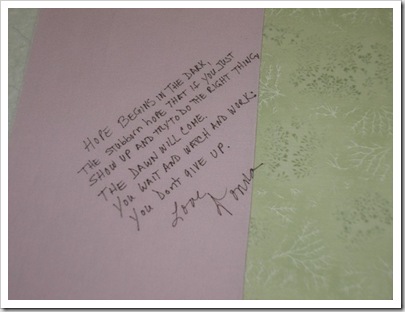 HOPE BEGINS IN THE DARK,
THE STUBBORN HOPE THAT IF YOU JUST
SHOW UP AND TRY TO DO THE RIGHT THING,
THE DAWN WILL COME.
YOU WAIT AND WATCH AND WORK:
YOU DON'T GIVE UP.
Love,